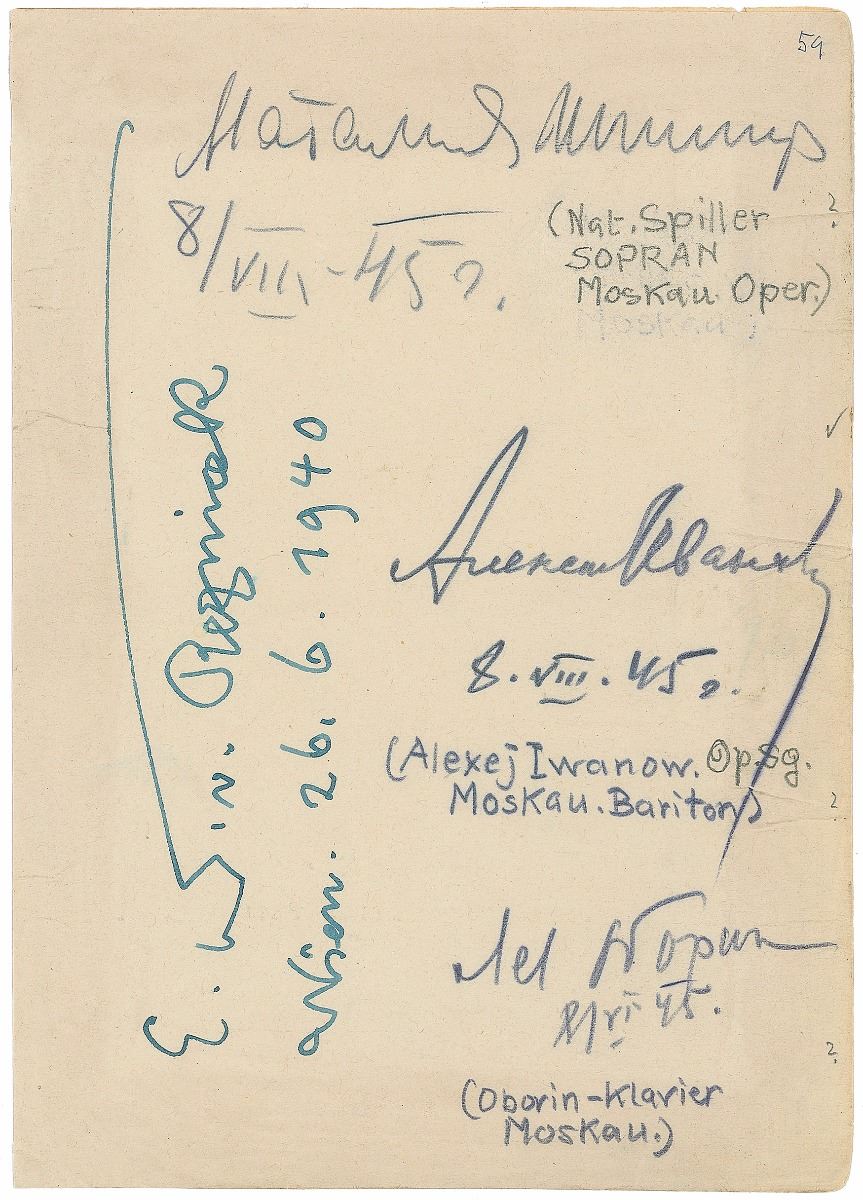 59
Наталия Шпиллер
8/VIII-45 г.
(Nat. Spiller
SOPRAN
Moskau. Oper.)
Moskau.)
?
E. N. v. Reznicek
Wien. 26. 6. 1940
Алексей Иванов
8.VIII.45 г.
(Alexej Iwanow. Op.Sg.
Moskau. Bariton)
?
Лев Оборин
45.
(Oborin-Klavier
Moskau.)
?